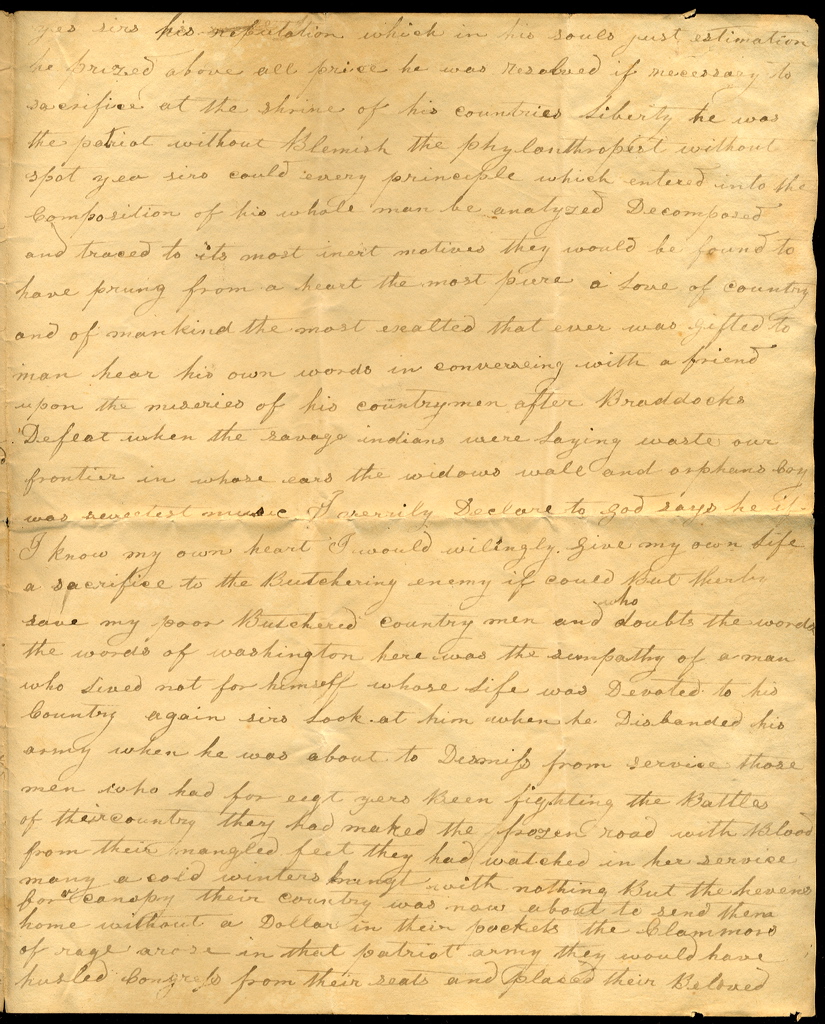 yes sirs his reputation which in his souls just estimation
he prized above all price he was resolved if necessary to
sacrifice at the shrine of his countries Liberty he was
the patriot without Blemish the phylanthropest without
spot yea sirs could every principle which entered into the
Composition of his whole man be analyzed Decomposed
and traced to its most inert motives they would be found to
have prung from a heart the most pure a Love of country
and of mankind the most exalted that ever was gifted to
man hear his own words in converseing with a friend
upon the miseries of his countrymen after Braddocks
Defeat when the savage indians were Laying waste our
frontier in whose ears the widows wale and orphans Cry
was sweetest music I verrily Declare to god says he if
I know my own heart I would wilingly Give my own Life
a sacrifice to the Butchering enemy if could But therby
save my poor Butchered country men and who doubts the words
the words of washington here was the simpathy of a man
who Lived not for himself whose Life was Devoted to his
Country again sirs Look at him when he Disbanded his
army when he was about to Desmiss from service those
men who had for eigt yers Been fighting the Battles
of their country they had marked the frozen road with Blood
from their mangled feet they had watched in her service
many a cold winters with nothing But the hevens
for a canopy their country was now about to send them
home without a Dollar in their pockets the Clammors
of rage arose in that patriot army they would have
husled Congress from their seats and placed their Beloved